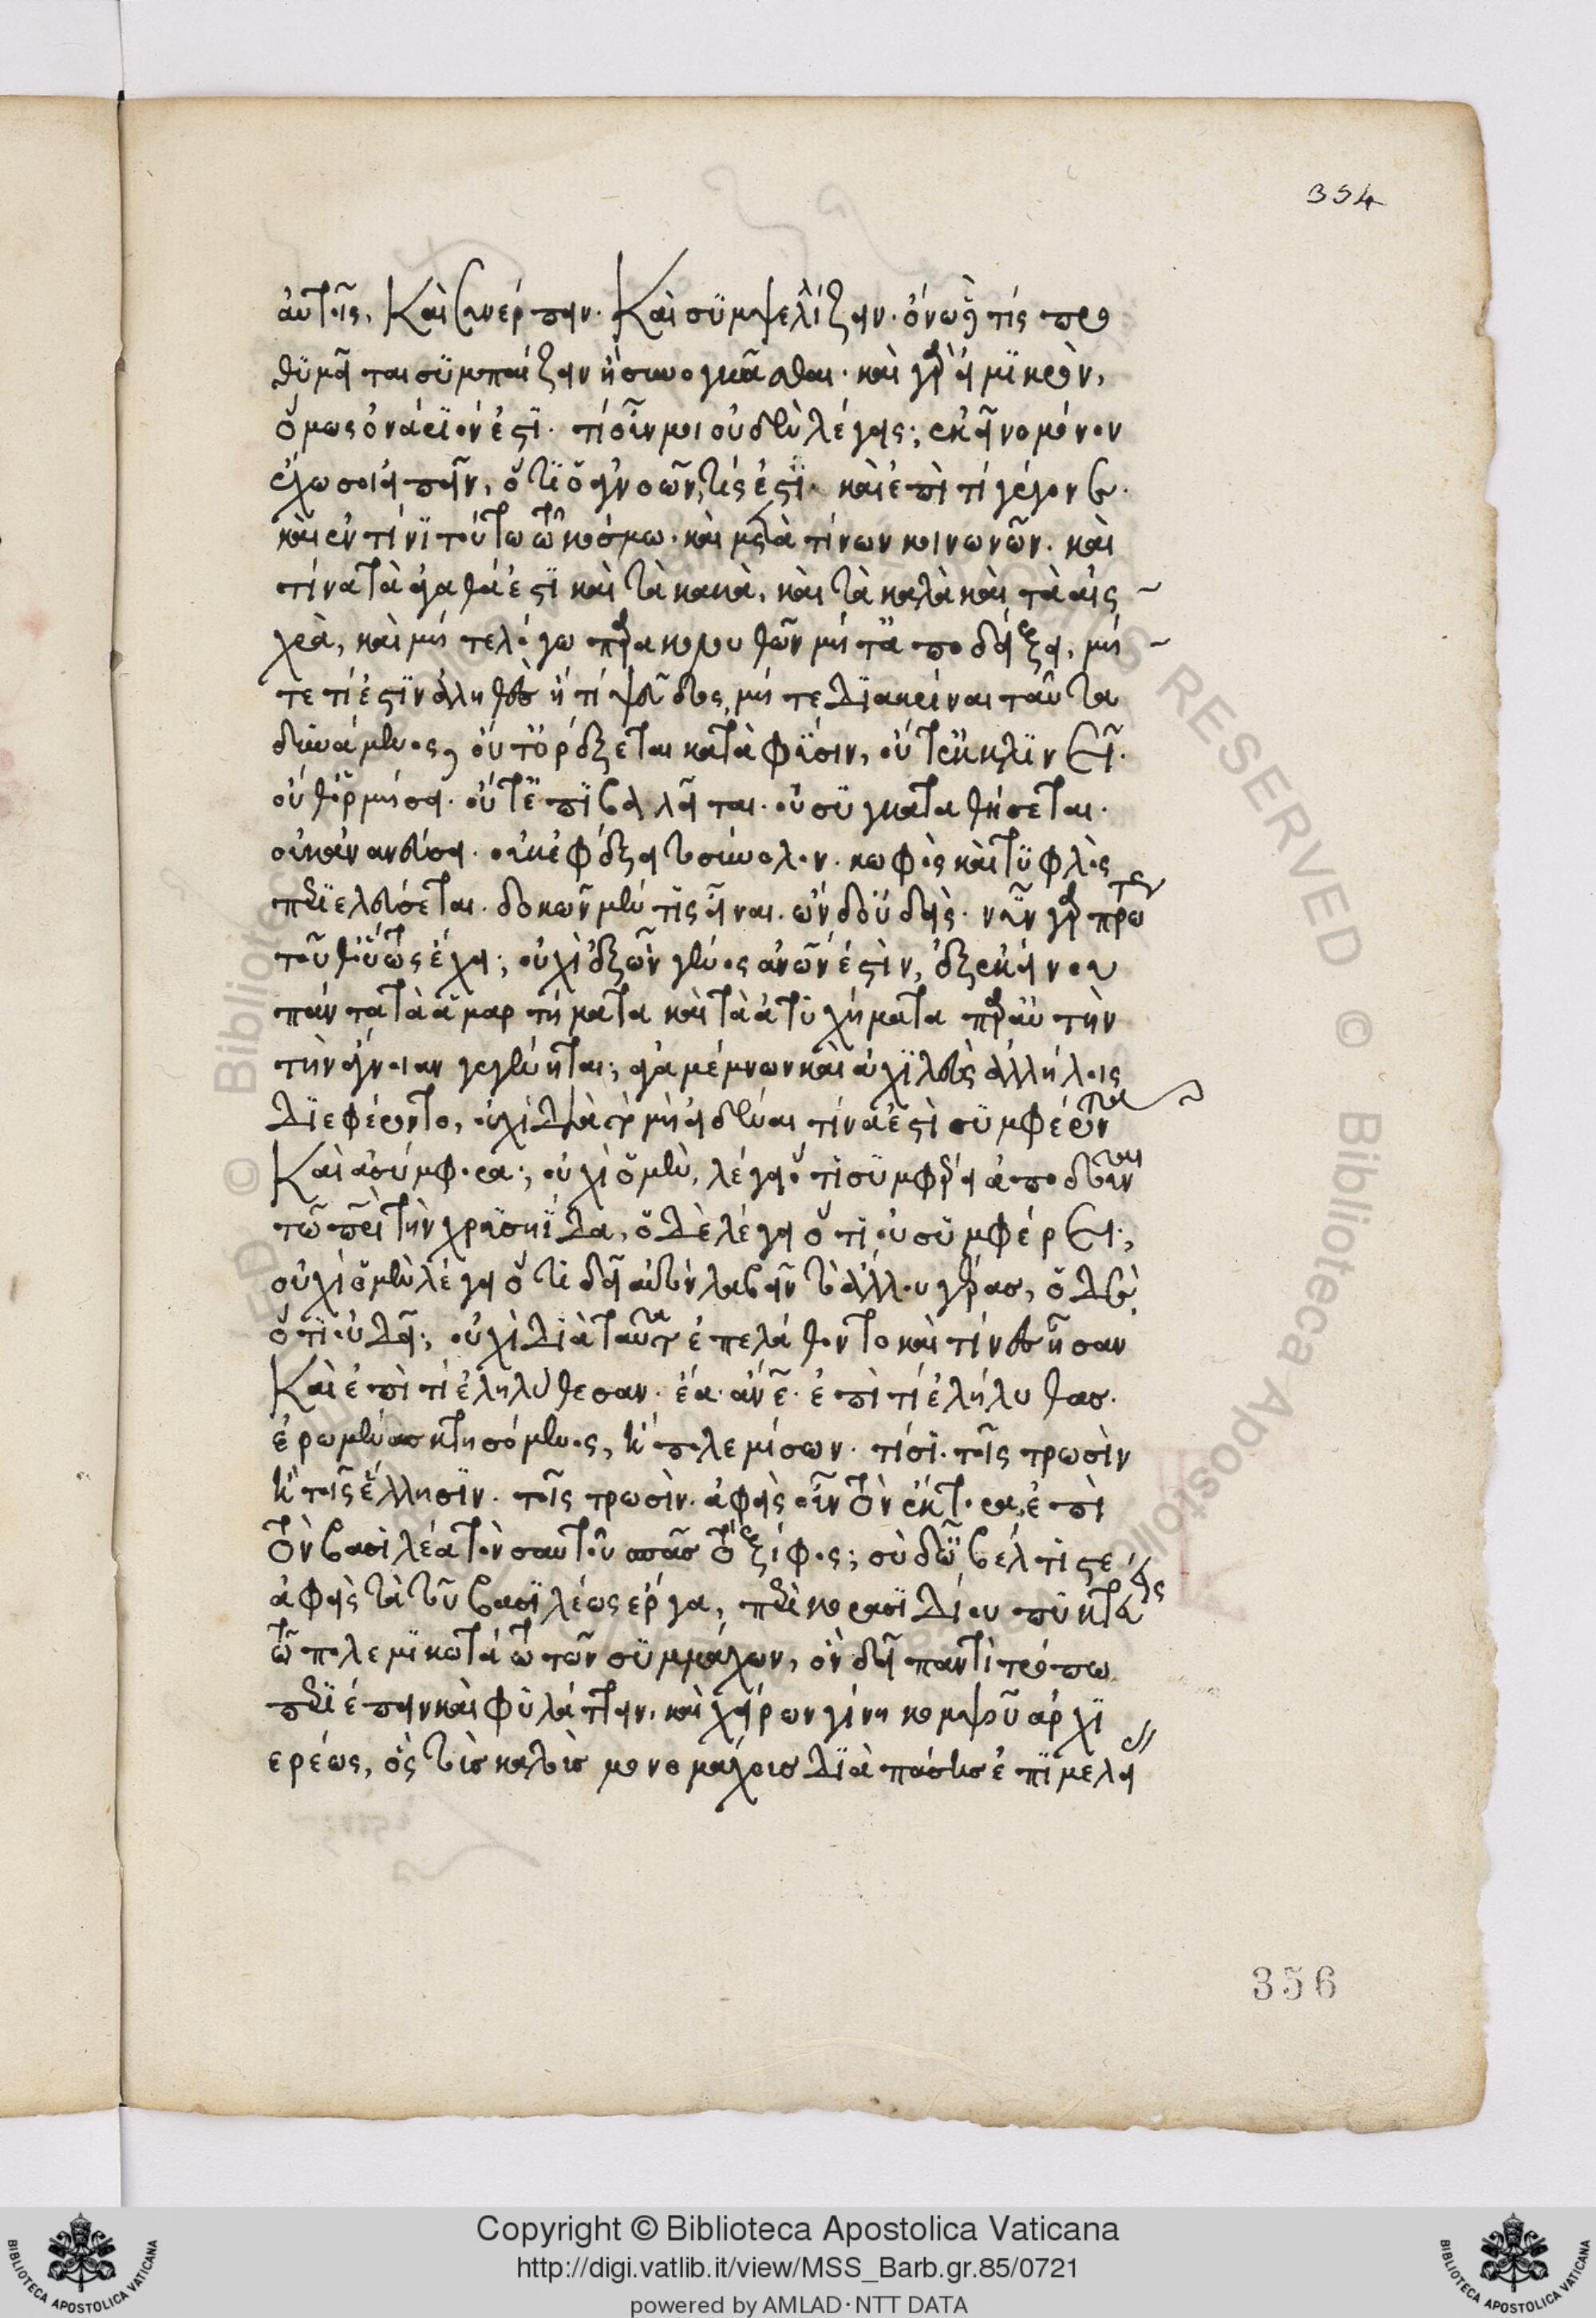 αὐτοῖς, καὶ συνέρπειν. καὶ συμψελίζειν. ὄνω δὲ τίς προ
θυμεῖται συμπαίζειν ἢ συνογκᾶσθαι. καὶ γὰρ εἰ μικρὸν,
ὅμως ὀνάριόν ἐστι. τί οὖν μοι οὐδὲν λέγεις; ἐκεῖνο μόνον
ἔχω σοι εἰπεῖν, ὅτι ὁ ἀγνοῶν, τίς ἐστι. καὶ ἐπὶ τί γέγονεν.
καὶ ἐν τίνι τούτω τῶ κόσμω. καὶ μετὰ τίνων κοινωνῶν. καὶ
τίνα τὰ ἀγαθά ἐστι καὶ τὰ κακὰ, καὶ τὰ καλὰ καὶ τὰ αἰσ
χρὰ, καὶ μήτε λόγω παρακολουθῶν μήτ' ἀποδείξει, μή
τε τί ἐστιν ἀληθὲς ἢ τί ψεῦδος, μήτε διακρίναι ταῦτα
δυνάμενος, οὔτ' ὀρέξεται κατὰ φύσιν, οὔτ' ἐκκλινεῖ.
οὔθ' ὁρμήσει. οὔτ' ἐπιβαλλεῖται. οὐ συγκαταθήσεται.
οὐκ ἀνανεύσει. οὐκ ἐφέξει τὸ σύνολον. κωφὸς καὶ τυφλὸς
περιελεύσεται. δοκῶν μέν τις εἶναι. ὢν δ' οὐδείς. νῦν γὰρ πρῶτον
τοῦθ' οὕτως ἔχει; οὐχὶ ἐξ ὧν γένος ἀνων ἐστὶν, ἐξ ἐκείνου
πάντα τὰ ἁμαρτήματα καὶ τὰ ἀτυχήματα παρ' αὐτὴν
τὴν ἄγνοιαν γεγένηται; ἀγαμέμνων καὶ ἀχιλεὺς ἀλλήλοις
διεφέροντο, οὐχὶ διὰ τὸ μὴ εἰδέναι τίνα ἐστὶ συμφέροντα
καὶ ἀσύμφορα; οὐχὶ ὁ μὲν, λέγει ὅτι συμφέρει ἀποδοῦναι
τῶ πατρὶ τὴν χρυσηίδα, ὁ δὲ λέγει ὅτι οὐ συμφέρει;
οὐχὶ ὁ μὲν λέγει ὅτι δεῖ αὐτὸν λαβεῖν τὸ ἄλλου γέρας, ὁ δὲ,
ὅτι οὐ δεῖ; οὐχὶ διὰ ταῦτα ἐπελάθοντο καὶ τίνες ἦσαν
καὶ ἐπὶ τί ἐληλύθεσαν. ἔα. ἄνε. ἐπὶ τί ἐλήλυθας.
ἐρωμένας κτησόμενος, ἢ πολεμίσων. τίσι. τοῖς τρωσὶν
ἢ τοῖς ἕλλησιν. τοῖς τρωσὶν. ἀφεὶς οὖν τὸν ἕκτορα, ἐπὶ
τὸν βασιλέα τὸν σαυτοῦ σπᾶς τὸ ξίφος; σὺ δ' ὦ βέλτιστε
ἀφεὶς τὰ τοῦ βασιλέως ἔργα, περὶ κορασιδίου πυκτεύεις
τῶ πολεμικωτάτω τῶν συμμάχων, ὃν δεῖ παντὶ τρόπω
περιέπειν καὶ φυλάττειν. καὶ χείρων γίνη κομψοῦ ἀρχι
ερέως, ὃς τοὺς καλοὺς μονομάχους διὰ πάσης ἐπιμελεί
354
356
Copyright © Biblioteca Apostolica Vaticana
http://digi.vatlib.it/view/MSS_Barb.gr.85/0721
powered by AMLAD·NTT DATA